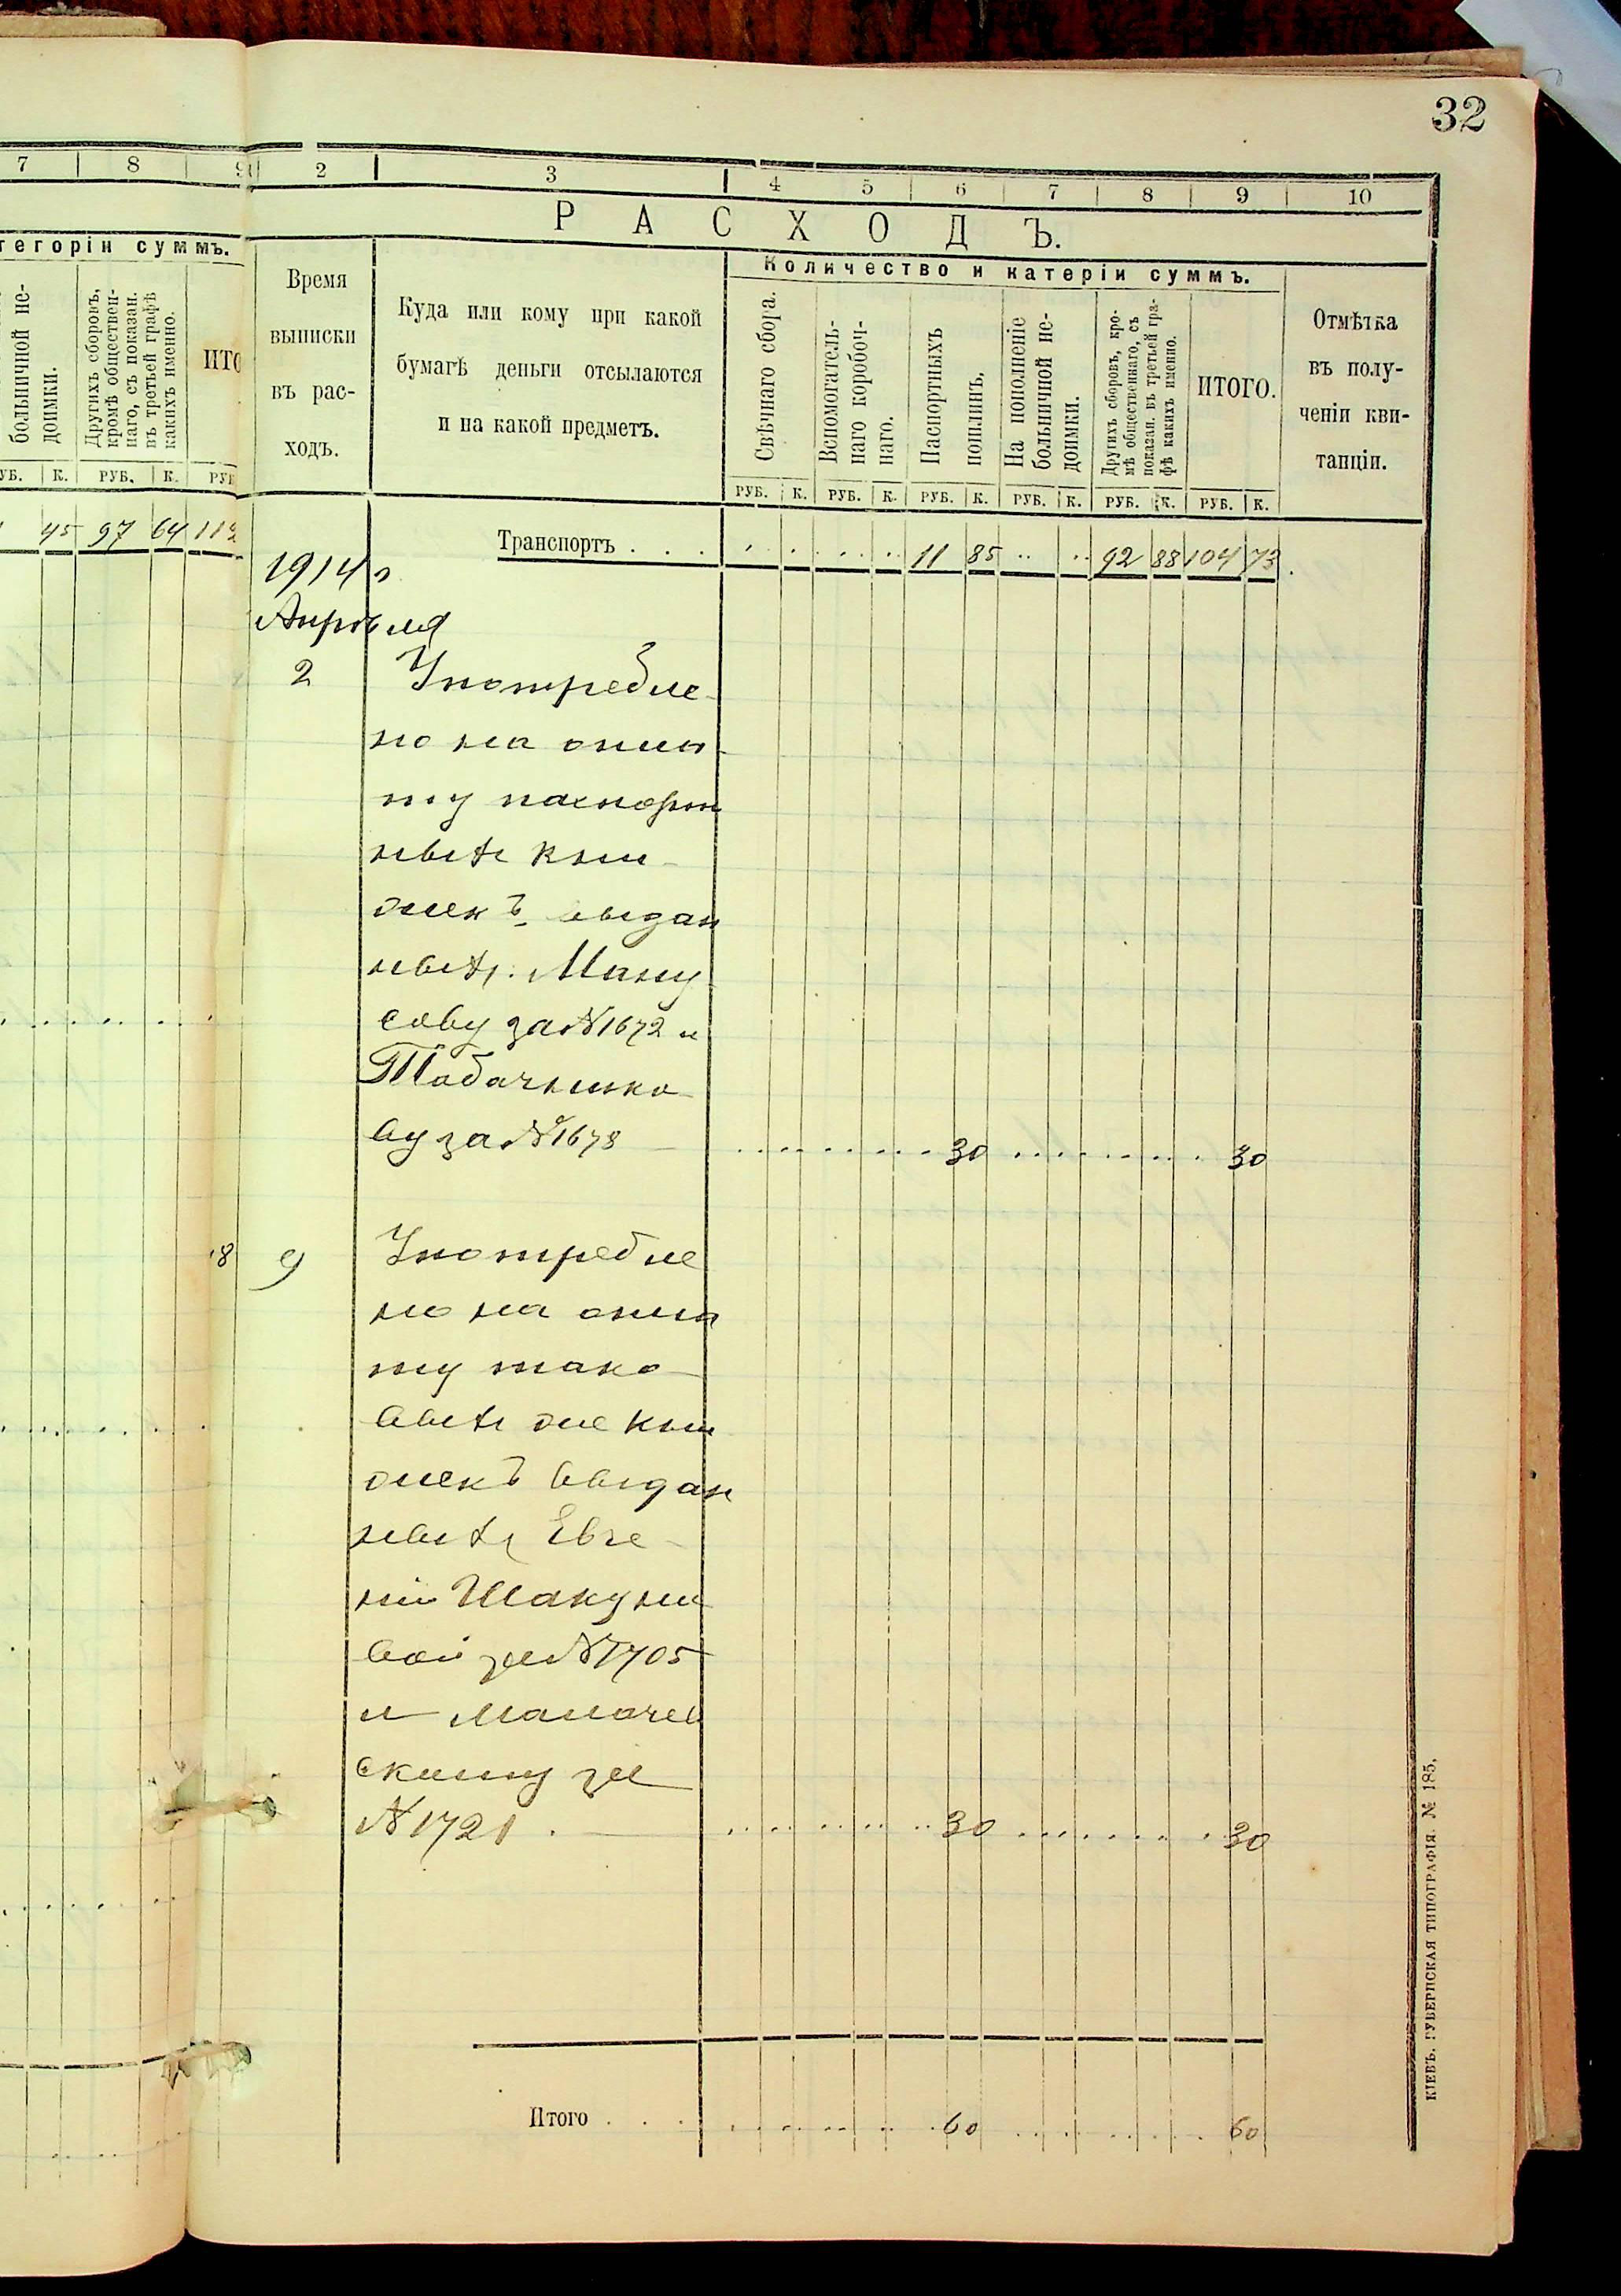 32
7 8 9
2 3 4 5 6 7 8 9 10
РАСХОДЪ.
тегоріи суммъ.
больничной не-
доимки.
Другихъ сборовъ,
кромѣ обществен-
наго, съ показан.
въ третьей графѣ
какихъ именно.
ИТО
УБ. К. РУБ. К. РУБ
45 97 64 112
Время
выписки
въ рас-
ходъ.
Куда или кому при какой
бумагѣ деньги отсылаются
и на какой предметъ.
Количество и катеріи суммъ.
Свѣчнаго сбора.
Вспомогатель-
наго коробоч-
наго.
Паспортныхъ
поплинъ.
На пополненіе
больничной не-
доимки.
Другихъ сборовъ, кро-
мѣ общественнаго, съ
показан. въ третьей гра-
фѣ какихъ именно.
ИТОГО.
Отмѣтка
въ полу-
ченіи кви-
танціи.
РУБ. К. РУБ. К. РУБ. К. РУБ. К. РУБ. К. РУБ. К.
Транспортъ . . . 11 85 92 88 104 73
1914 г
Апрѣля
2 Употребле-
но на опла-
ту паспорт
ныхъ кни-
жекъ, выдан
ныхъ: Ману
сову за № 1672 и
Табачнико-
ву за № 1678 30 30
18
9 Употребле
но на опла
ту тако-
выхъ же кни
жекъ выдан
ныхъ Евге-
ніи Шакуни
вой за № 1705
и Маначев
скому за
№ 1721. 30 30
Итого . . . 60 60
КІЕВЪ. ГУБЕРНСКАЯ ТИПОГРАФІЯ. № 185.